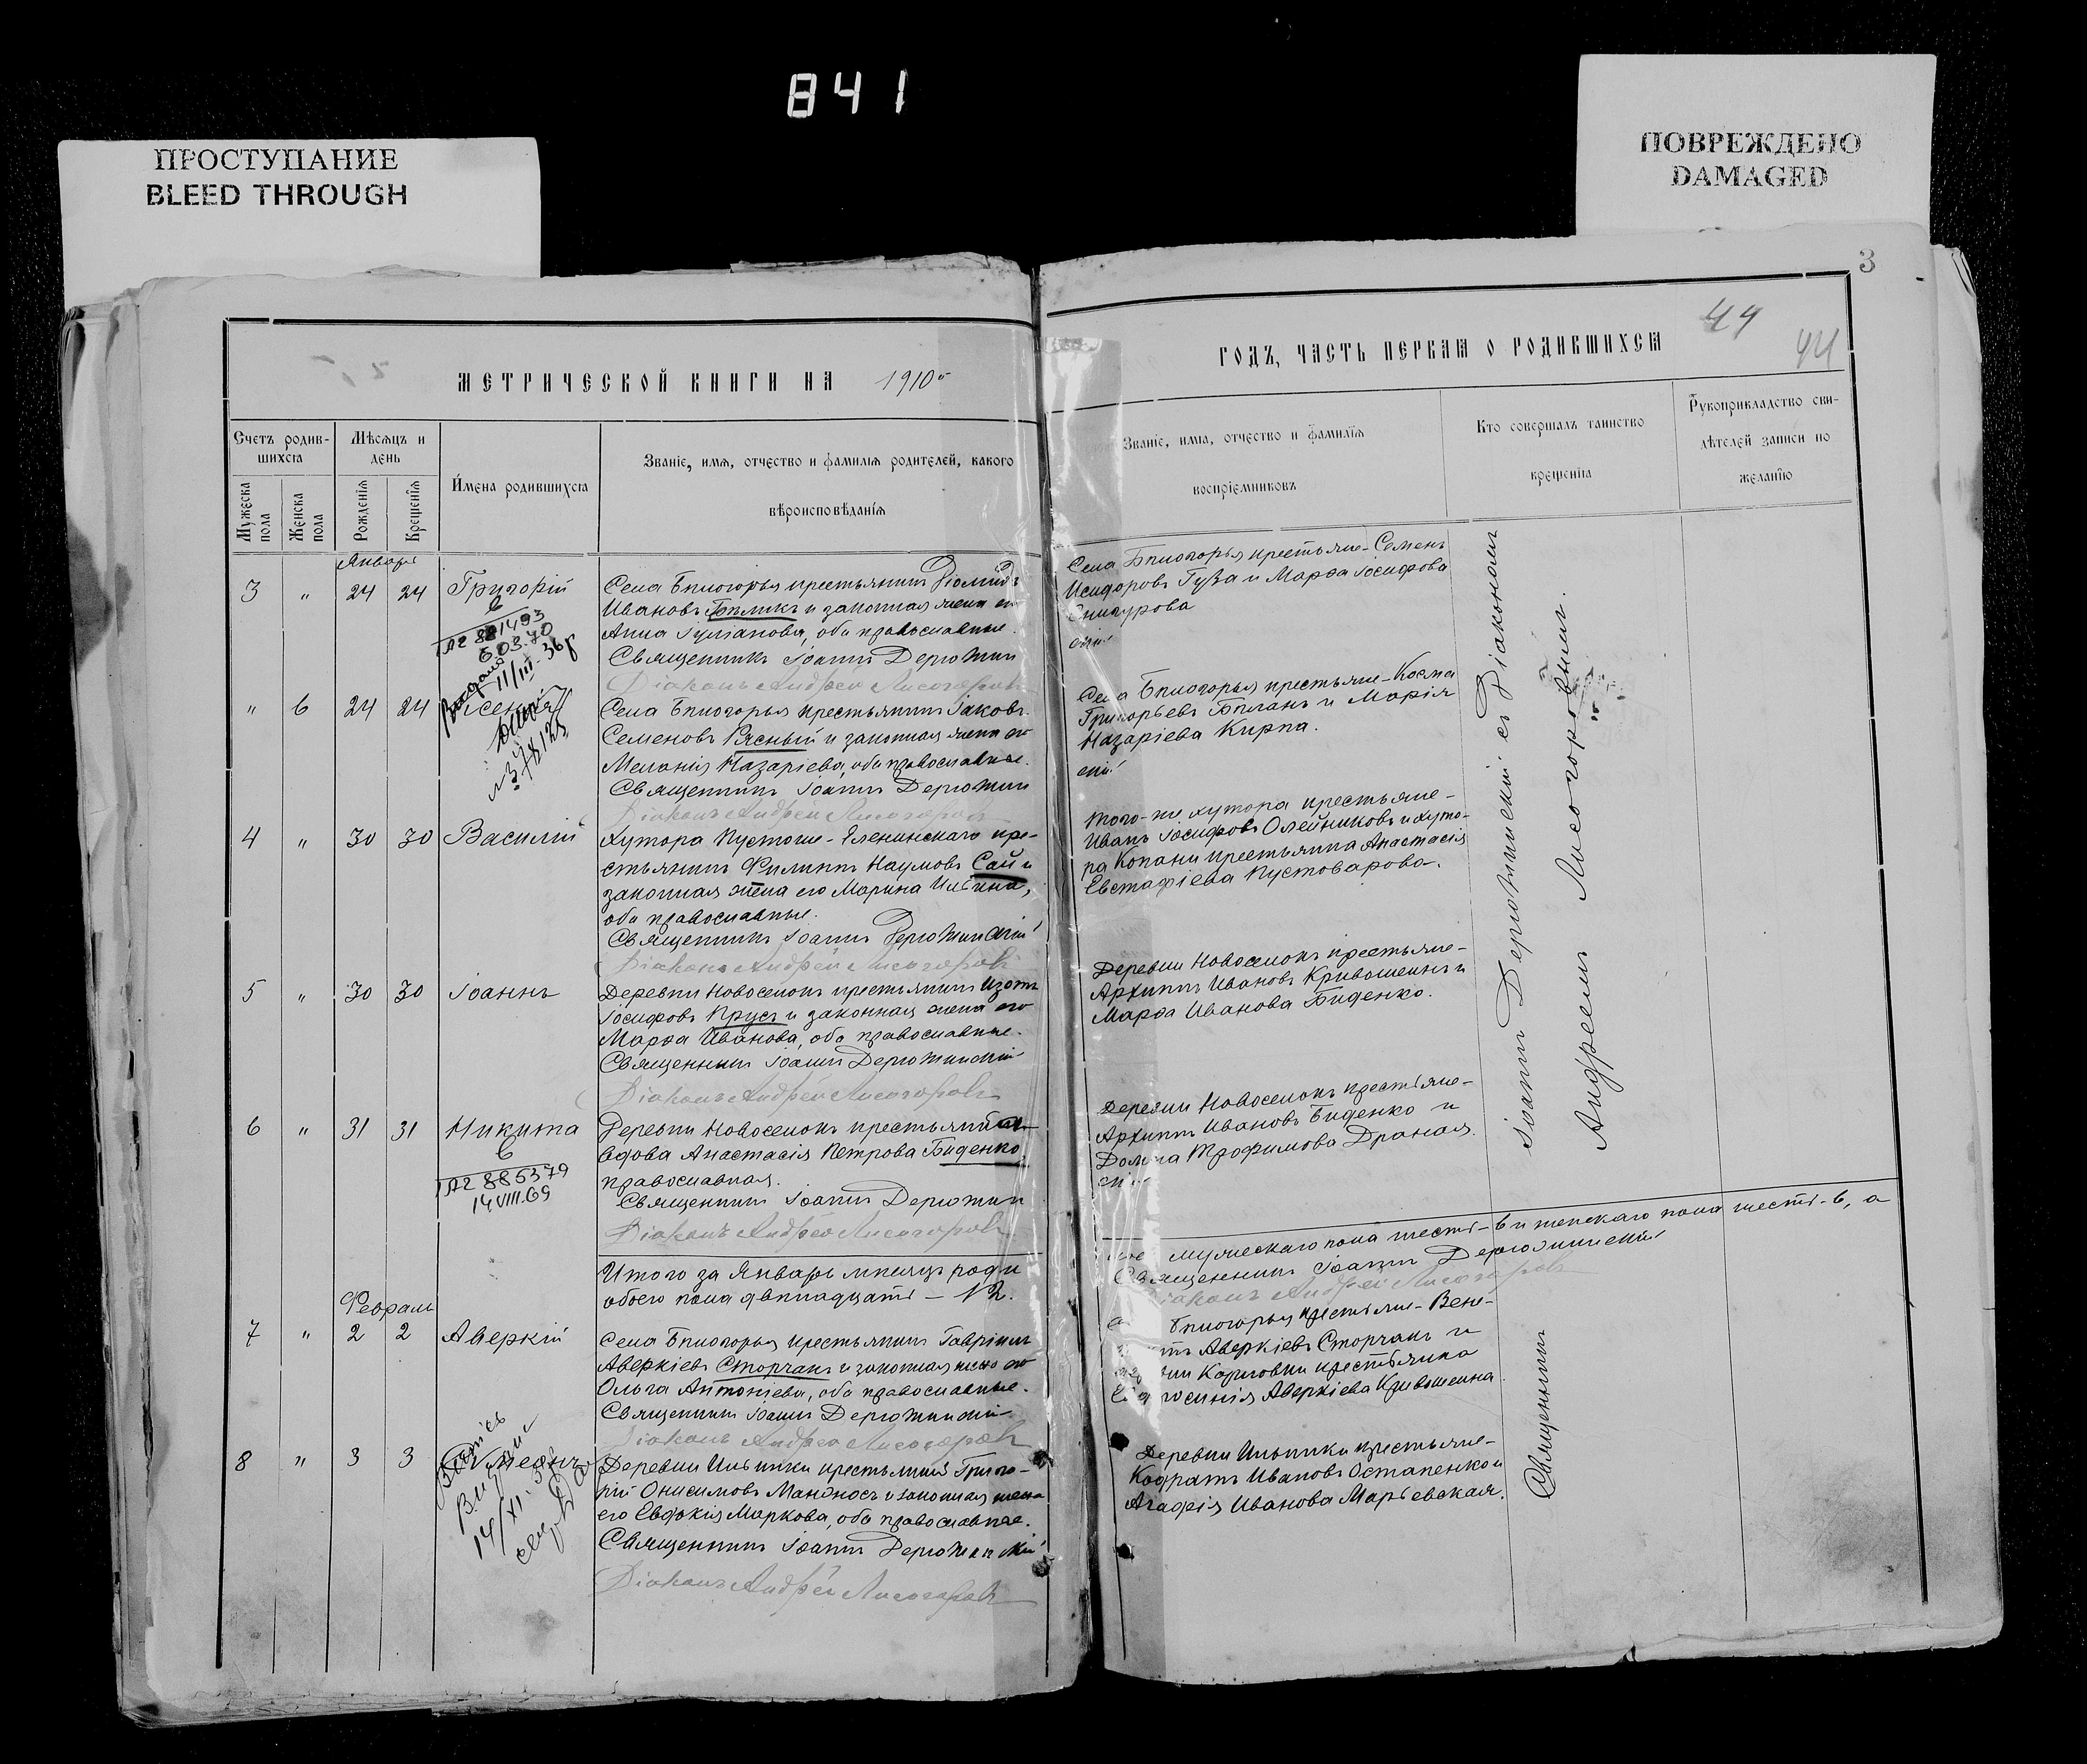 841
ПРОСТУПАНИЕ
BLEED THROUGH
ПОВРЕЖДЕНО
DAMAGED
3
44
44
МЕТРИЧЕСКОЙ КНИГИ НА 1910й
ГОДЪ, ЧАСТЬ ПЕРВАЯ О РОДИВШИХСЯ
Счетъ родив-
шихся
Мужеска пола
Женска пола
Мѣсяцъ и
день
Рожденія
Крещенія
Имена родившихся
Званіе, имя, отчество и фамилія родителей, какого
вѣроисповѣданія
Званіе, имя, отчество и фамилія
воспріемниковъ
Кто совершалъ таинство
крещенія
Рукоприкладство сви-
дѣтелей записи по
желанію
Январь
3 " 24 24 Григорій
Села Бѣлогорья крестьянинъ Діомидъ
Ивановъ и законная жена его
Анна Іуліанова, оба православные.
Священникъ Іоаннъ Дерюжин
Діаконъ Андрей Лисогоровъ
Села Бѣлогорья крестьяне - Семенъ
Исидоровъ Гуза и Марѳа Іосифова
Снигурова
881493
11/III-36г
" 6 24 24
Села Бѣлогорья крестьянинъ Іаковъ
Семеновъ Рясный и законная жена его
Меланія Назаріева, оба православные.
Священникъ Іоаннъ Дерюжин
Діаконъ Андрей Лисогоровъ
Села Бѣлогорья крестьяне - Косма
Григорьевъ Бѣланъ и Марія
Назаріева Кирпа.
4 " 30 30 Василій
Хутора Пустоше-Еленинскаго кре-
стьянинъ Филиппъ Наумовъ Сай и
законная жена его Марина Ильина,
оба православные.
Священникъ Іоаннъ Дерюжинскій
Діаконъ Андрей Лисогоровъ
того-же хутора крестьяне -
Иванъ Іосифовъ Олейниковъ и хуто-
ра Копани крестьянка Анастасія
Евстафіева Пустоварова.
5 " 30 30 Іоаннъ
Деревни Новоселокъ крестьянинъ Изотъ
Іосифовъ Прусъ и законная жена его
Марѳа Иванова, оба православные.
Священникъ Іоаннъ Дерюжинскій
Діаконъ Андрей Лисогоровъ
Деревни Новоселокъ крестьяне -
Архиппъ Ивановъ Кривошеинъ и
Марѳа Иванова Биденко.
6 " 31 31 Никита
885379
14 VIII.69
Деревни Новоселокъ крестьянка
вдова Анастасія Петрова Биденко
православная.
Священникъ Іоаннъ Дерюжин
Діаконъ Андрей Лисогоровъ
Деревни Новоселокъ крестьяне -
Архиппъ Ивановъ Биденко и
Домна Трофимова Драная.
Итого за Январь мѣсяцъ роди
мужескаго пола шесть - 6 и женскаго пола шесть - 6, а
обоего пола двѣнадцать - 12.
Священникъ Іоаннъ Дерюжинскій
Діаконъ Андрей Лисогоровъ
Февраль
7 " 2 2 Аверкій
Села Бѣлогорья крестьянинъ Гавріилъ
Аверкіевъ Сторчакъ и законная жена его
Ольга Антоніева, оба православные.
Священникъ Іоаннъ Дерюжинскій
Діаконъ Андрей Лисогоровъ
Бѣлогорья крестьяне -
Аверкіевъ Сторчакъ и
крестьянка
Аверкіева Кривошеина
8 " 3 3 Сѵмеонъ
14/XI-38
Деревни Ильинки крестьянинъ Григо-
рій Онисимовъ Маноносъ и законная жена
его Евдокія Маркова, оба православные.
Священникъ Іоаннъ Дерюжинскій
Діаконъ Андрей Лисогоровъ
Деревни Ильинки крестьяне -
Кодратъ Ивановъ Остапенко и
Агафія Иванова Марьевская.
Священникъ Іоаннъ Дерюжинскій съ Діакономъ
Андреемъ Лисогоровымъ.